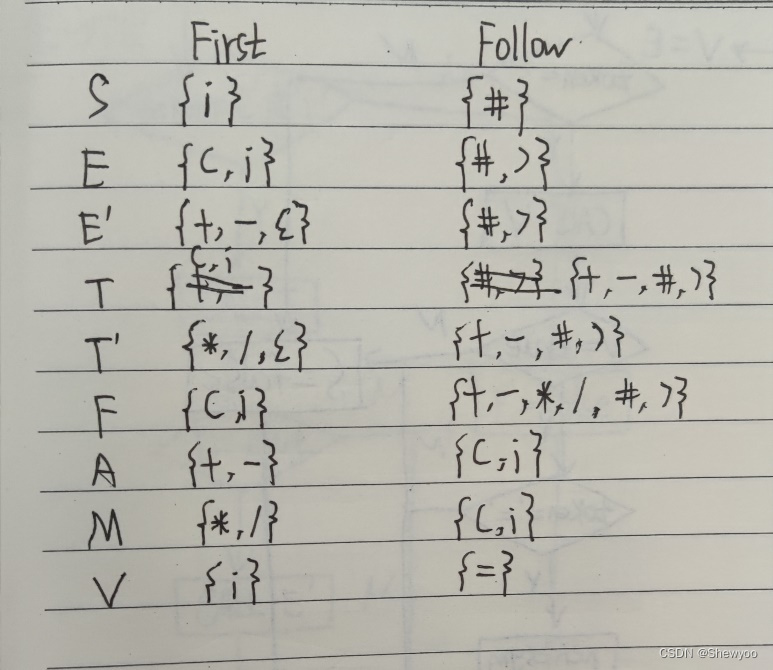 First Follow
S {i} {#}
E {(,i} {#,)}
E' {+,-,ε} {#,)}
T {(,i} {#,)} {+,-,#,)}
T' {*,/,ε} {+,-,#,)}
F {(,i} {+,-,*,/,#,)}
A {+,-} {(,i}
M {*,/} {(,i}
V {i} {=}
CSDN @Shewyoo